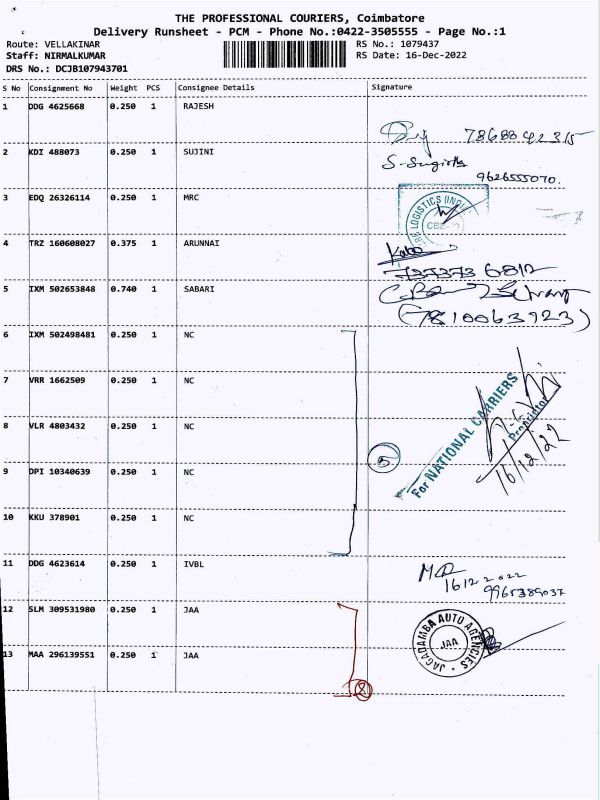 THE PROFESSIONAL COURIERS, Coimbatore
Delivery Runsheet - PCM - Phone No.:0422-3505555 - Page No.:1
Route: VELLAKINAR RS No.: 1079437
Staff: NIRMALKUMAR RS Date: 16-Dec-2022
DRS No.: DCJB107943701
S No Consignment No Weight PCS Consignee Details Signature
1 DDG 4625668 0.250 1 RAJESH
7868842315
2 KDI 488073 0.250 1 SUJINI
9626555070.
3 EDQ 26326114 0.250 1 MRC
LOGISTICS
4 TRZ 160608027 0.375 1 ARUNNAI
737373 6812
5 IXM 502653848 0.740 1 SABARI
(7810063923)
6 IXM 502498481 0.250 1 NC
7 VRR 1662509 0.250 1 NC
8 VLR 4803432 0.250 1 NC
9 DPI 10340639 0.250 1 NC
10 KKU 378901 0.250 1 NC
5
For NATIONAL CARRIERS
Proprietor
16/12/22
11 DDG 4623614 0.250 1 IVBL
16 12 2022
9965389037
12 SLM 309531980 0.250 1 JAA
13 MAA 296139551 0.250 1 JAA
2
JAGADAMBA AUTO AGENCIES
JAA